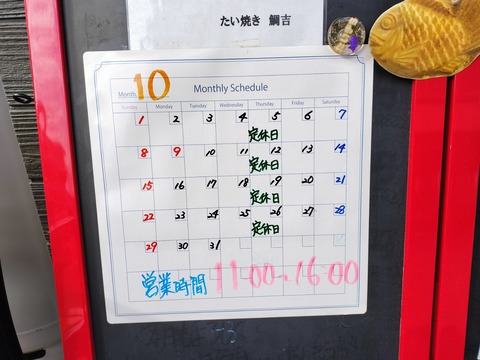 たい焼き 鯛吉
Month 10 Monthly Schedule
Sunday Monday Tuesday Wednesday Thursday Friday Saturday
1 2 3 4 5 6 7
定休日
8 9 10 11 12 13 14
定休日
15 16 17 18 19 20 21
定休日
22 23 24 25 26 27 28
定休日
29 30 31
営業時間 11:00~16:00